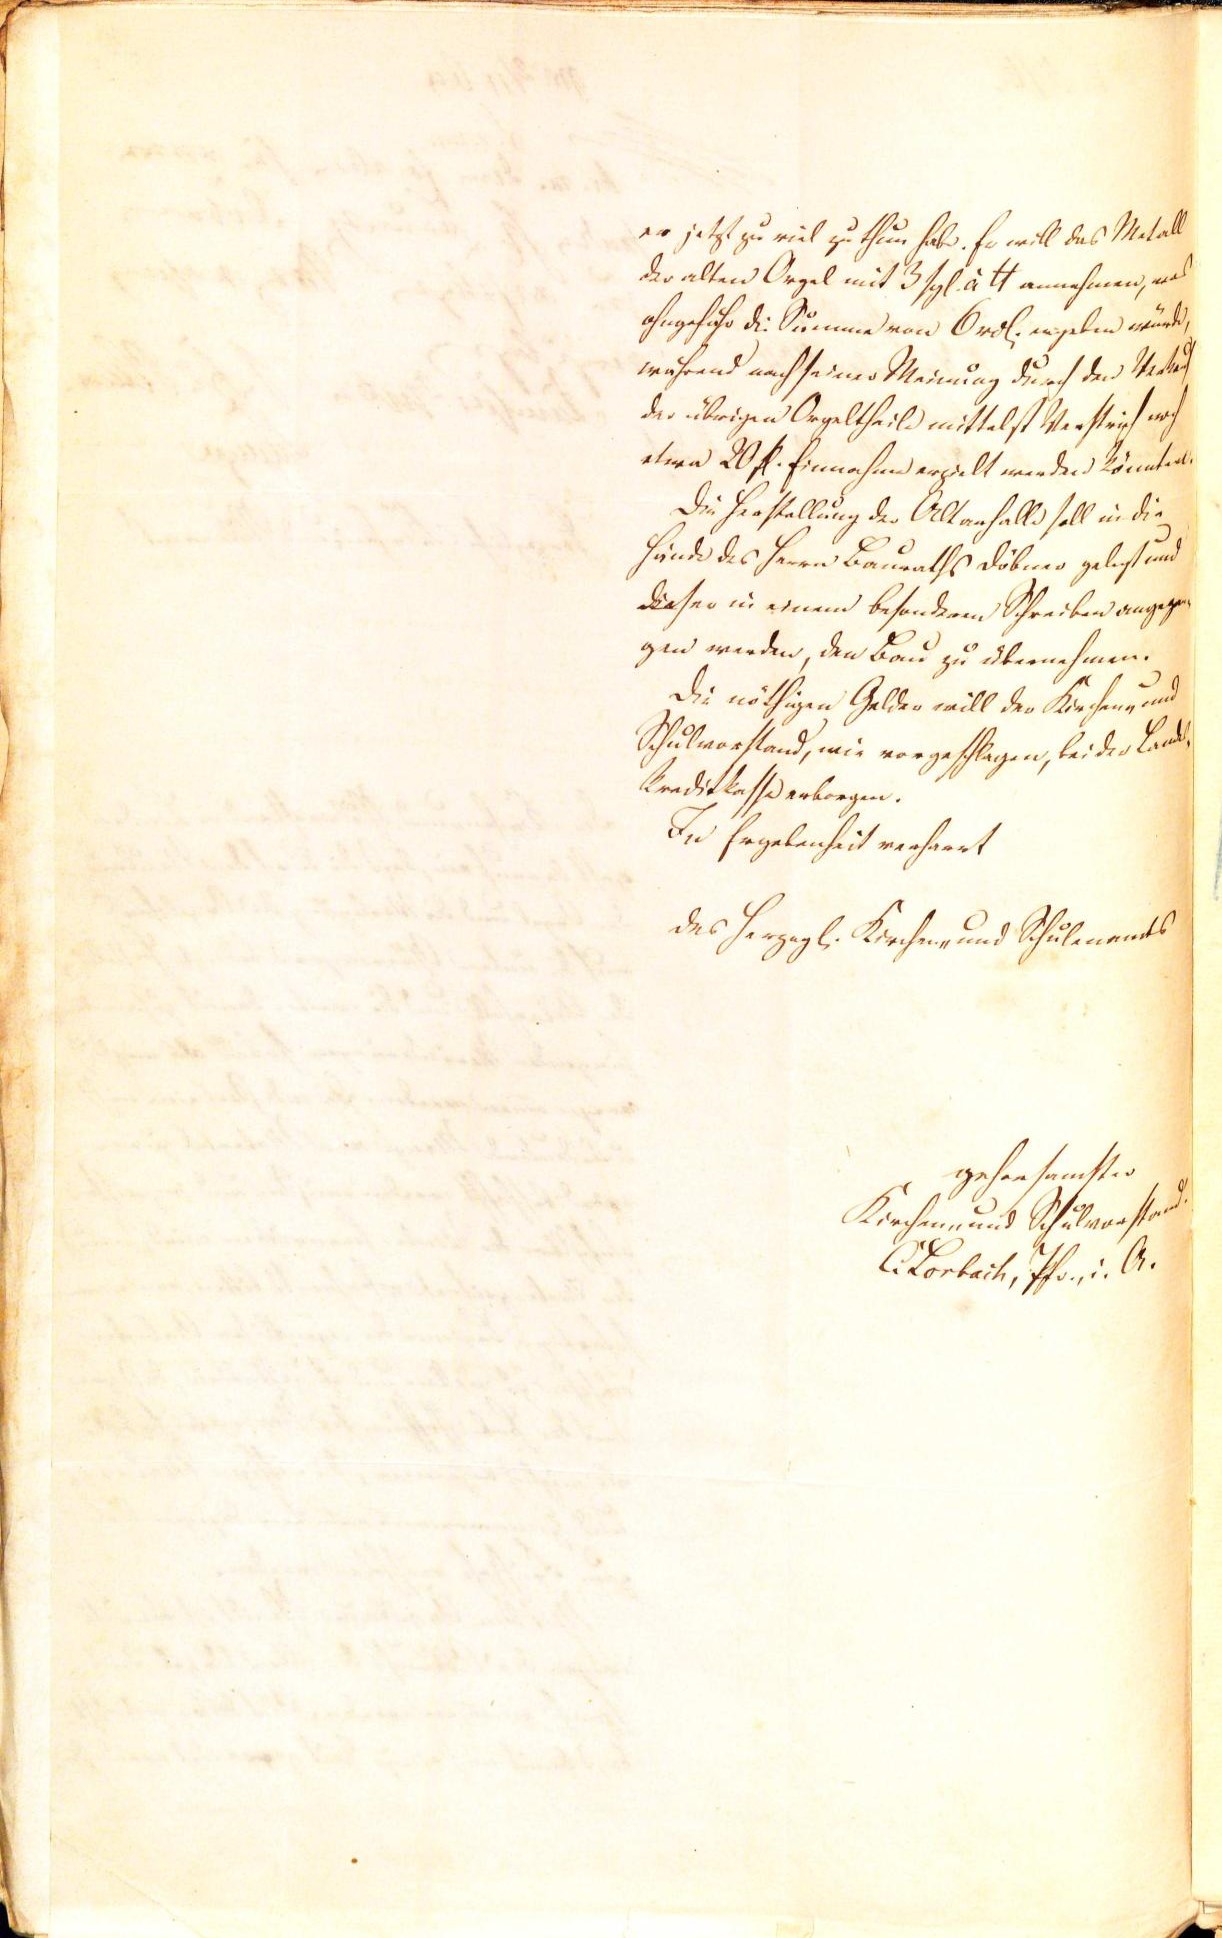 er jetzt zu viel zu thun habe. Er will das Metall
der alten Orgel mit 3 sgl. à ℔ annehmen, was
ohngefähr die Summe von 6 rdl. ergeben würde,
während nach seiner Meinung durch den Verkauf
der übrigen Orgeltheile mittelst Verstrich noch
etwa 20 fl. Einnahme erzielt werden könnten.
Die Herstellung der Altarhalle soll in die
Hände des Herrn Bauraths Döbner gelegt und
dieser in einem besonderen Schreiben angegan-
gen werden, den Bau zu übernehmen.
Die nöthigen Gelder will der Kirchen- und
Schulvorstand, wie vorgeschlagen, bei der Landes-
kreditkasse erborgen.
In Ergebenheit verharrt
des Herzogl. Kirchen- und Schulenamts
gehorsamster
Kirchen- und Schulvorstand.
C. Lorbach, Pfr. i. A.